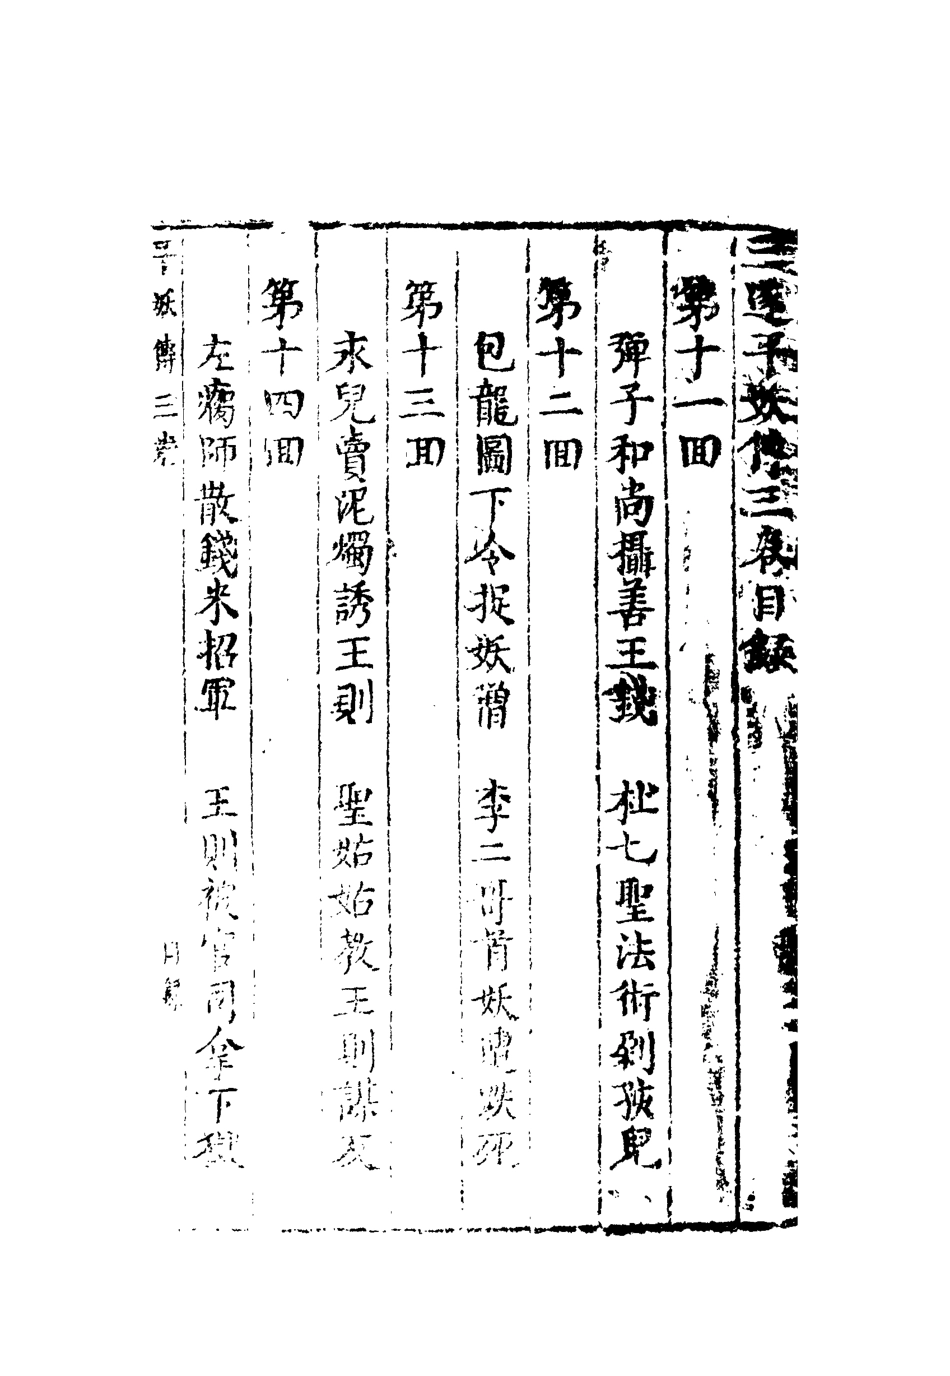 三遂平妖傳三卷目錄
第十一囬
彈子和尚攝善王錢　杜七聖法術剁孩兒
第十二囬
包龍圖下令捉妖僧　李二哥首妖遭跌死
第十三囬
永兒賣泥燭誘王則　聖姑姑教王則謀反
第十四囬
左瘸師散錢米招軍　王則被官司拿下獄
平妖傳三卷
目錄